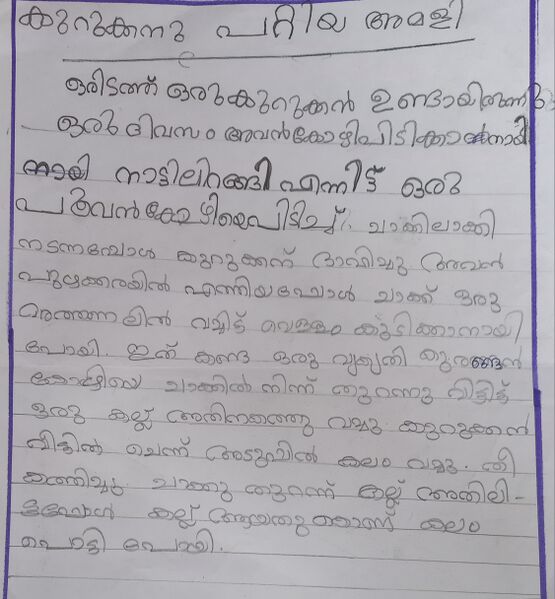 കുറുക്കനു പറ്റിയ അമളി
ഒരിടത്ത് ഒരു കുറുക്കൻ ഉണ്ടായിരുന്നു
ഒരു ദിവസം അവൻ കോഴി പിടിക്കാനായി
നാട്ടിലിറങ്ങി എന്നിട്ട് ഒരു
പൂവൻകോഴിയെ പിടിച്ച് ചാക്കിലാക്കി
നടന്നപ്പോൾ കുറുക്കന് ദാഹിച്ചു അവൻ
പുഴക്കരയിൽ എത്തിയപ്പോൾ ചാക്ക് ഒരു
മരത്തണലിൽ വച്ചിട്ട് വെള്ളം കുടിക്കാനായി
പോയി. ഇത് കണ്ട ഒരു വികൃതി കുരങ്ങൻ
കോഴിയെ ചാക്കിൽ നിന്ന് തുറന്നു വിട്ടിട്ട്
ഒരു കല്ല് അതിനകത്തു വച്ചു. കുറുക്കൻ
വീട്ടിൽ ചെന്ന് അടുപ്പിൽ കലം വച്ചു. തീ
കത്തിച്ചു. ചാക്കു തുറന്ന് കല്ല് അതിലി-
ട്ടപ്പോൾ കല്ല് ആയതു കൊണ്ട് കലം
പൊട്ടി പോയി.